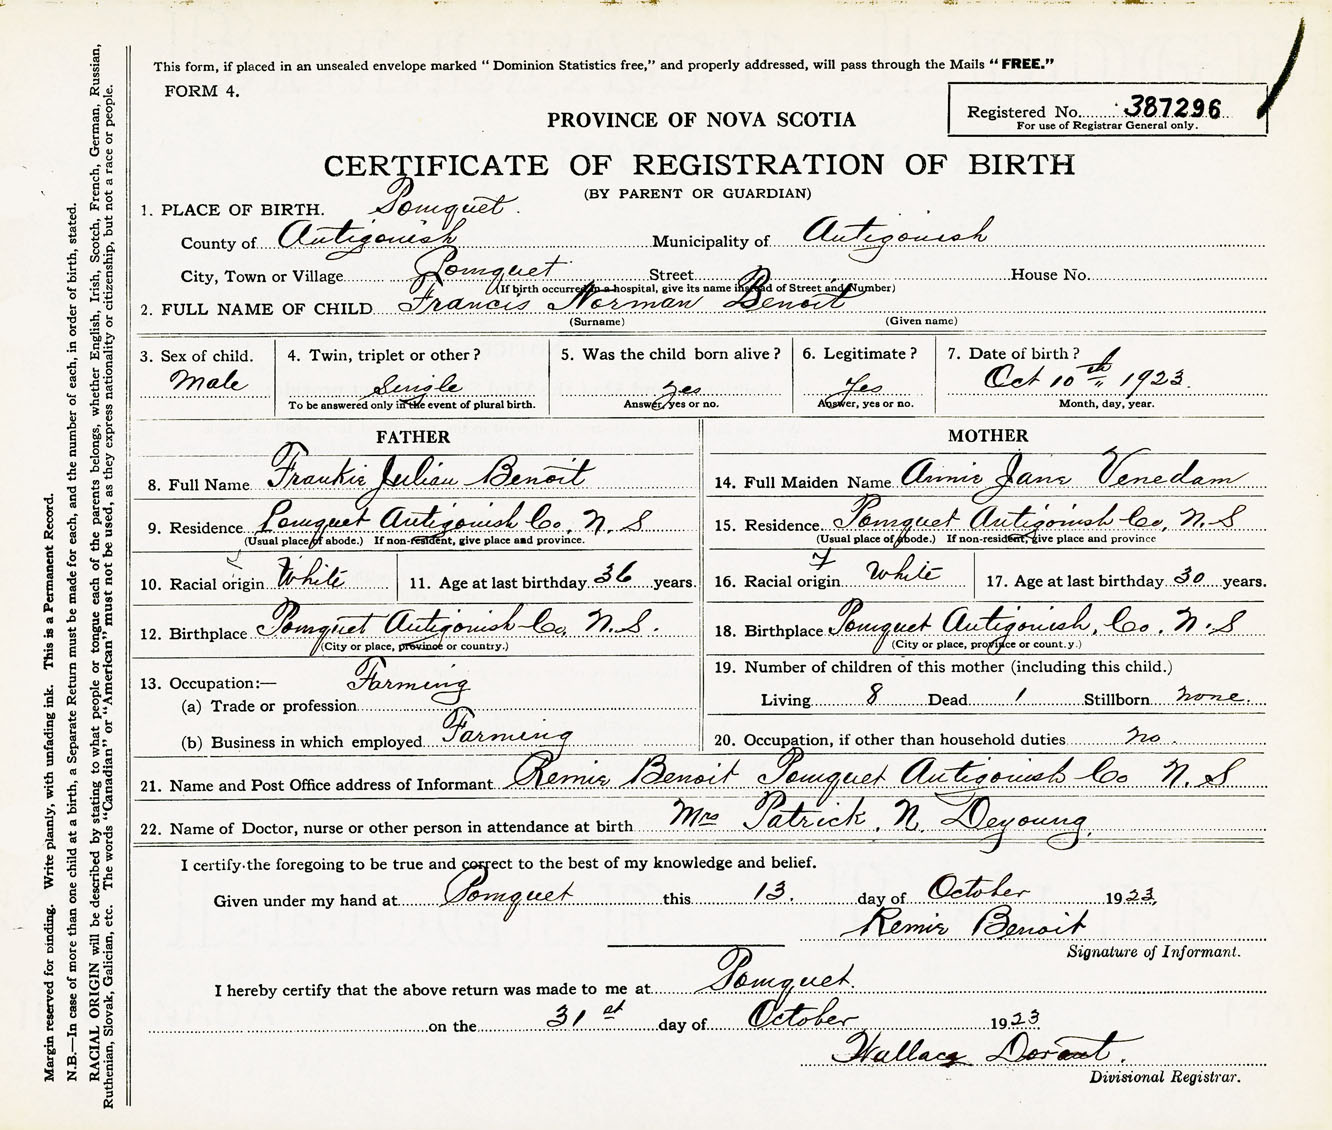 This form, if placed in an unsealed envelope marked " Dominion Statistics free," and properly addressed, will pass through the Mails " FREE."
FORM 4.
Registered No. 387296
For use of Registrar General only.
PROVINCE OF NOVA SCOTIA
CERTIFICATE OF REGISTRATION OF BIRTH
(BY PARENT OR GUARDIAN)
1. PLACE OF BIRTH. Pomquet.
County of Antigonish Municipality of Antigonish
City, Town or Village Pomquet Street House No.
(If birth occurred in a hospital, give its name instead of Street and Number)
2. FULL NAME OF CHILD Francis Norman Benoit
(Surname) (Given name)
3. Sex of child. Male
4. Twin, triplet or other? Single
To be answered only in the event of plural birth.
5. Was the child born alive? yes
Answer, yes or no.
6. Legitimate? Yes
Answer, yes or no.
7. Date of birth? Oct 10th 1923.
Month, day, year.
FATHER
8. Full Name Frankie Julian Benoit
9. Residence Pomquet Antigonish Co, N. S
(Usual place of abode.) If non-resident, give place and province.
10. Racial origin White 11. Age at last birthday 36 years.
12. Birthplace Pomquet Antigonish Co, N. S.
(City or place, province or country.)
13. Occupation:— Farming
(a) Trade or profession
(b) Business in which employed Farming
MOTHER
14. Full Maiden Name Annie Jane Venedam
15. Residence Pomquet Antigonish Co, N. S
(Usual place of abode.) If non-resident, give place and province
16. Racial origin White 17. Age at last birthday 30 years.
18. Birthplace Pomquet Antigonish, Co. N. S
(City or place, province or count.y.)
19. Number of children of this mother (including this child.)
Living 8 Dead 1 Stillborn none.
20. Occupation, if other than household duties no.
21. Name and Post Office address of Informant Remie Benoit Pomquet Antigonish Co N. S
22. Name of Doctor, nurse or other person in attendance at birth Mrs Patrick. N. Deyoung.
I certify the foregoing to be true and correct to the best of my knowledge and belief.
Given under my hand at Pomquet this 13. day of October 1923,
Remie Benoit
Signature of Informant.
I hereby certify that the above return was made to me at Pomquet.
on the 31st day of October 1923
Wallace Dorant.
Divisional Registrar.
Margin reserved for binding. Write plainly, with unfading ink. This is a Permanent Record.
N.B.—In case of more than one child at a birth, a Separate Return must be made for each, and the number of each, in order of birth, stated.
RACIAL ORIGIN will be described by stating to what people or tongue each of the parents belongs, whether English, Irish, Scotch, French, German, Russian,
Ruthenian, Slovak, Galician, etc. The words "Canadian" or "American" must not be used, as they express nationality or citizenship, but not a race or people.